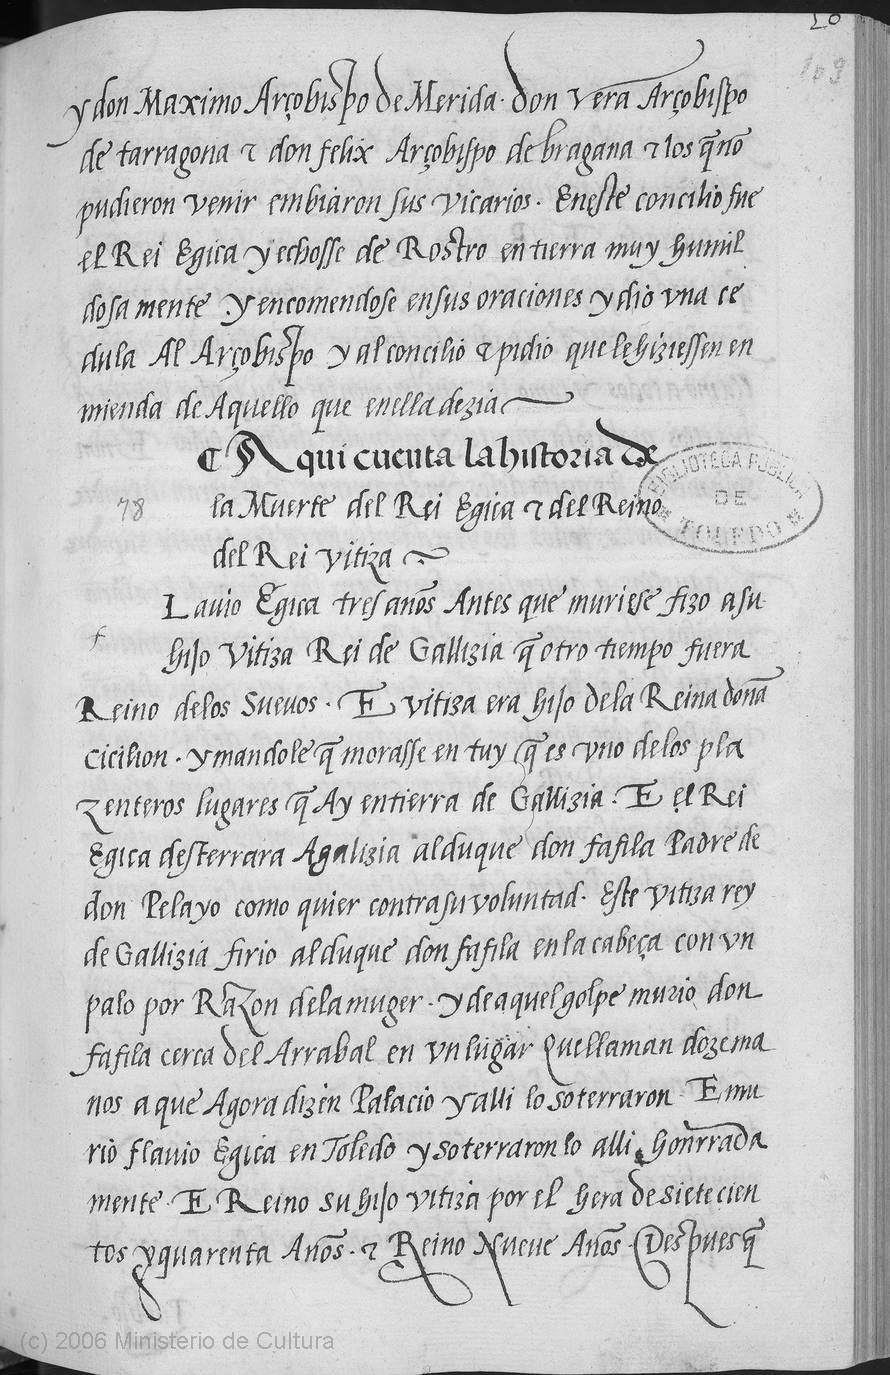 109
y don Maximo Arçobispo de Merida. don vera Arçobispo
de tarragona ⁊ don felix Arçobispo de bragana ⁊ los q̃ no
pudieron venir embiaron sus vicarios. En este concilio fue
el Rei Egica y echosse de Rostro en tierra muy humil
dosa mente. y encomendose en sus oraciones y dio vna ce
dula Al Arçobispo y al concilio ⁊ pidio que le hiziessen en
mienda de Aquello que en ella dezia
¶ Aqui cuenta la historia de
78 la Muerte del Rei Egica ⁊ del Reino
del Rei vitiza
Lauio Egica tres años Antes que muriese fizo a su
f hijo Vitiza Rei de Gallizia q̃ otro tiempo fuera
Reino delos Sueuos. E vitiza era hijo dela Reina doña
Cicilion. y mandole q̃ morasse en tuy q̃ es vno delos pla
zenteros lugares q̃ Ay en tierra de Gallizia. E el Rei
Egica desterrara Agalizia al duque don fafila Padre de
don Pelayo como quier contra su voluntad. Este vitiza rey
de Gallizia firio al duque don fafila en la cabeça con vn
palo por Razon dela muger. y de aquel golpe murio don
fafila cerca del Arrabal en vn lugar Quellaman dozema
nos a que Agora dizen Palacio y alli lo soterraron E mu
rio flauio Egica en Toledo y soterraronlo alli honrrada
mente. E Reino su hijo vitiza por el hera de siete cien
tos y quarenta Años. ⁊ Reino Nueue Años. Despues q̃
BIBLIOTECA PUBLICA
DE
TOLEDO
(c) 2006 Ministerio de Cultura